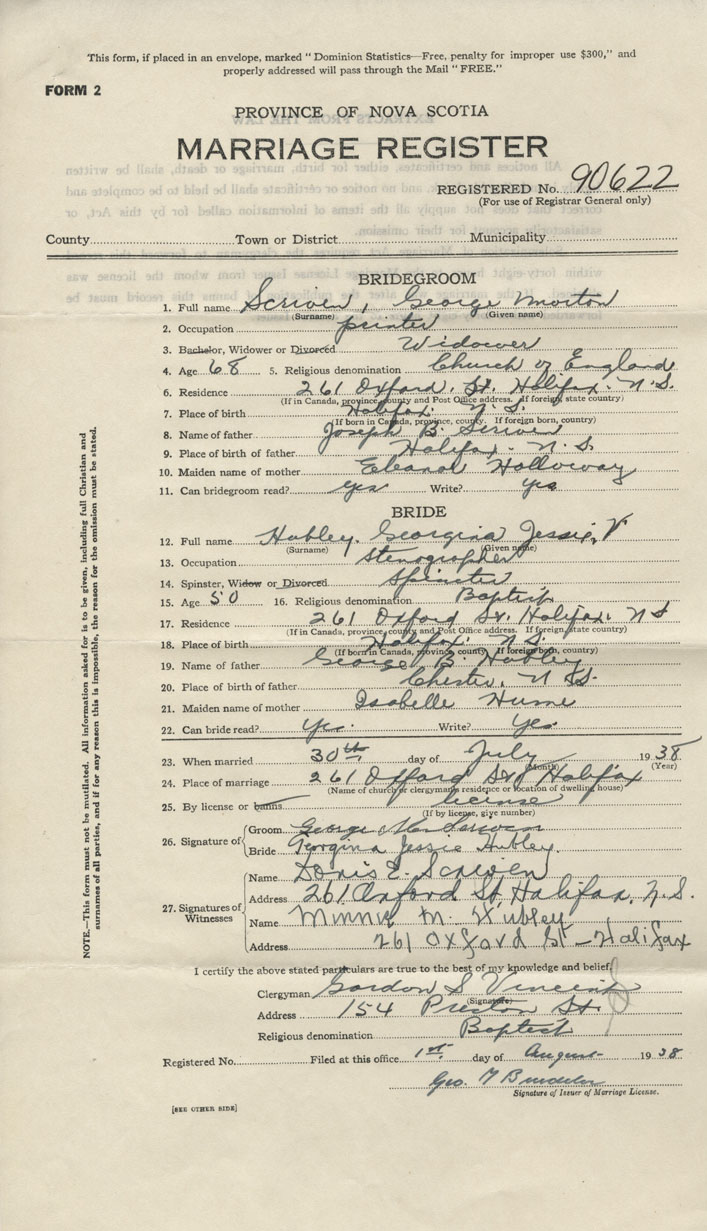 This form, if placed in an envelope, marked "Dominion Statistics—Free, penalty for improper use $300," and
properly addressed will pass through the Mail "FREE."
FORM 2
PROVINCE OF NOVA SCOTIA
MARRIAGE REGISTER
REGISTERED No. 90622
(For use of Registrar General only)
County Town or District Municipality
BRIDEGROOM
1. Full name Scriven, George Morton
(Surname) (Given name)
2. Occupation printer
3. Bachelor, Widower or Divorced Widower
4. Age 68 5. Religious denomination Church of England
6. Residence 261 Oxford. St. Halifax. N.S.
(If in Canada, province, county and Post Office address. If foreign, state country)
7. Place of birth Halifax. N.S.
(If born in Canada, province, county. If foreign born, country)
8. Name of father Joseph B. Scriven
9. Place of birth of father Halifax. N.S.
10. Maiden name of mother Eleanor Holloway
11. Can bridegroom read? yes Write? yes
BRIDE
12. Full name Hubley. Georgina Jessie, V
(Surname) (Given name)
13. Occupation Stenographer
14. Spinster, Widow or Divorced Spinster
15. Age 50 16. Religious denomination Baptist
17. Residence 261 Oxford St. Halifax. N S
(If in Canada, province, county and Post Office address. If foreign, state country)
18. Place of birth Halifax. N.S.
(If born in Canada, province, county. If foreign born, country)
19. Name of father George B. Hubley
20. Place of birth of father Chester, N.S.
21. Maiden name of mother Isabelle Hume
22. Can bride read? Yes. Write? Yes.
23. When married 30th day of July 1938
(Month) (Year)
24. Place of marriage 261 Oxford St. Halifax
(Name of church or clergyman's residence or location of dwelling house)
25. By license or banns license
(If by license, give number)
26. Signature of
Groom George Scriven
Bride Georgina Jessie Hubley.
27. Signatures of Witnesses
Name Doris E. Scriven
Address 261 Oxford St, Halifax, N.S.
Name Minnie M. Hubley
Address 261 Oxford St – Halifax
I certify the above stated particulars are true to the best of my knowledge and belief.
Clergyman Gordon S Vincent
(Signature)
Address 154 Preston St.
Religious denomination Baptist
Registered No. Filed at this office 1st. day of August 1938
Geo.
Signature of Issuer of Marriage License.
[SEE OTHER SIDE]
NOTE.—This form must not be mutilated. All information asked for is to be given, including full Christian and
surnames of all parties, and if for any reason this is impossible, the reason for the omission must be stated.